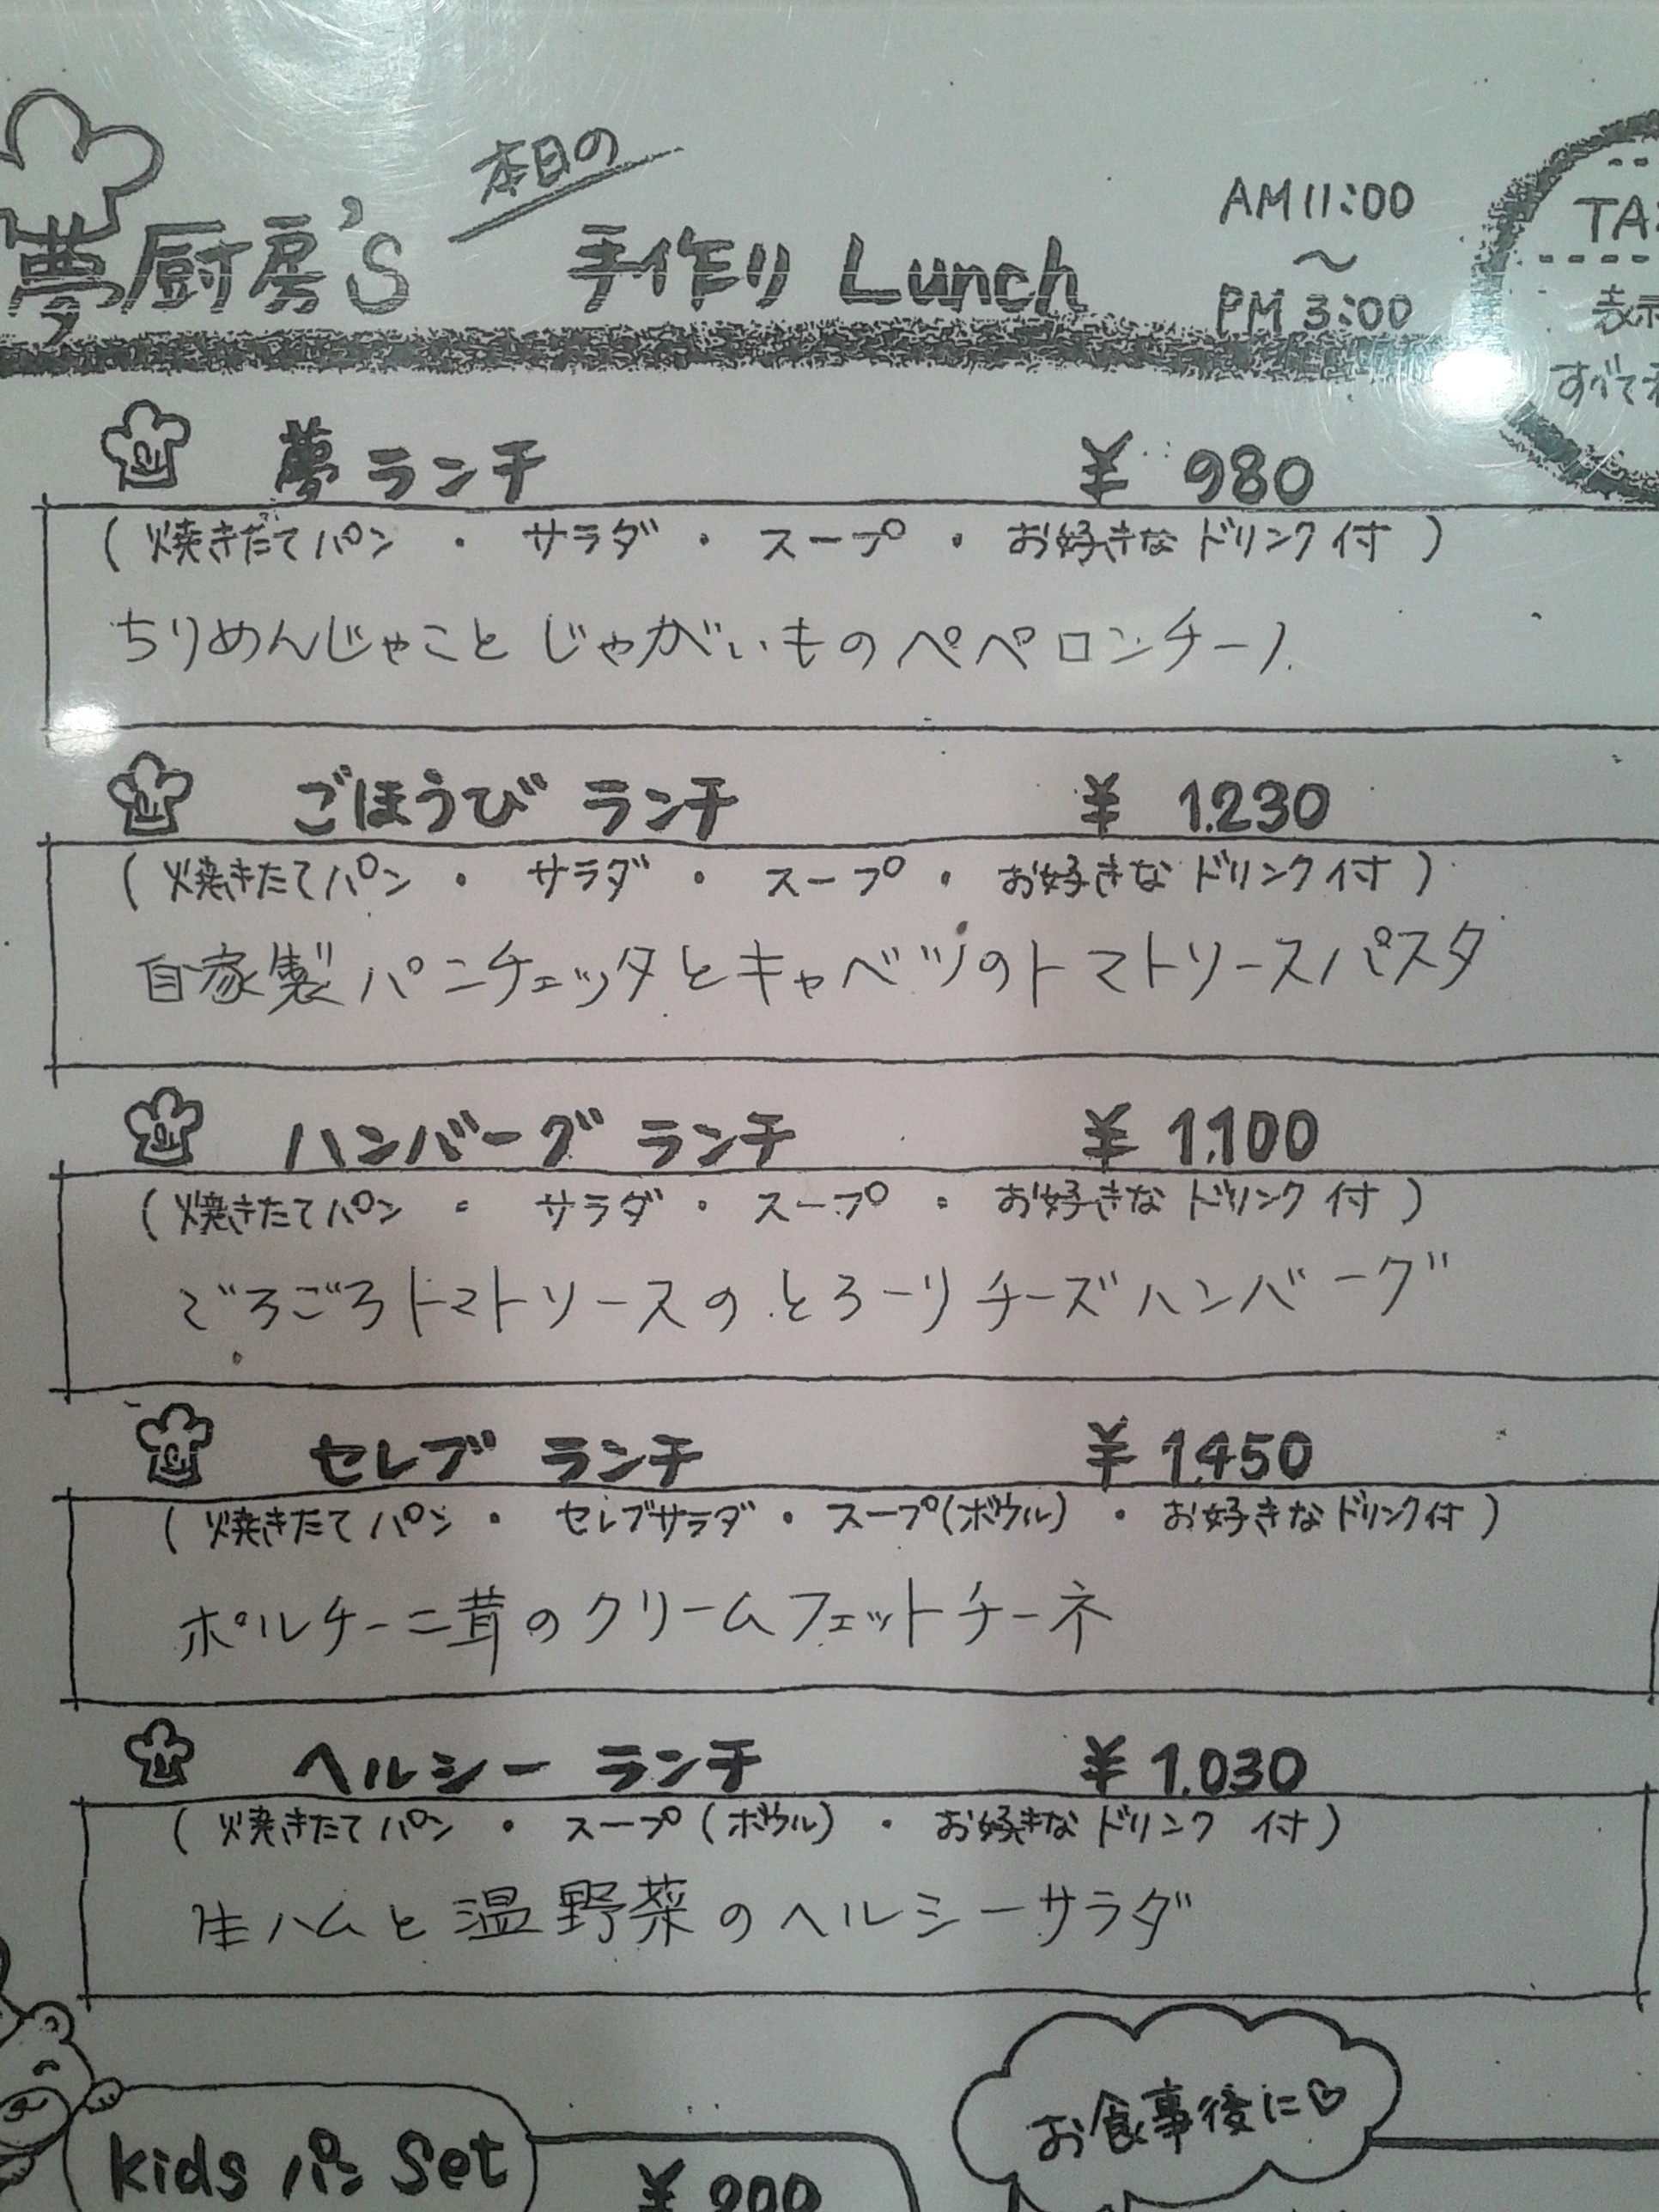 本日の
夢厨房's 手作り Lunch
AM11:00
～
PM 3:00
夢ランチ ¥ 980
(焼きたてパン ・ サラダ ・ スープ ・ お好きなドリンク付)
ちりめんじゃことじゃがいものペペロンチーノ
ごほうび ランチ ¥ 1.230
(焼きたてパン ・ サラダ ・ スープ ・ お好きなドリンク付)
自家製パンチェッタとキャベツのトマトソースパスタ
ハンバーグ ランチ ¥ 1.100
(焼きたてパン ・ サラダ ・ スープ ・ お好きなドリンク付)
ごろごろトマトソースのとろーりチーズハンバーグ
セレブ ランチ ¥ 1.450
(焼きたてパン ・ セレブサラダ ・ スープ(ボウル) ・ お好きなドリンク付)
ポルチーニ茸のクリームフェットチーネ
ヘルシー ランチ ¥ 1.030
(焼きたてパン ・ スープ(ボウル) ・ お好きなドリンク付)
生ハムと温野菜のヘルシーサラダ
お食事後に♡
kids パン Set